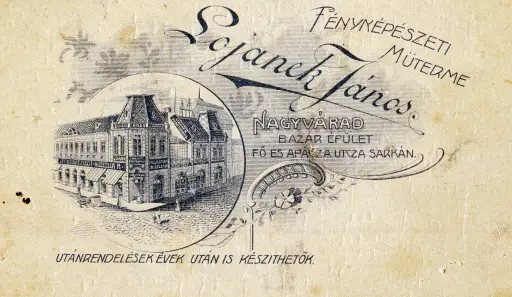 Lojanek János.
FÉNYKÉPÉSZETI
MŰTERME
NAGYVÁRAD
BAZÁR ÉPÜLET
FŐ ÉS APÁCZA UTCZA SARKÁN.
UTÁNRENDELÉSEK ÉVEK UTÁN IS KÉSZITHETŐK.